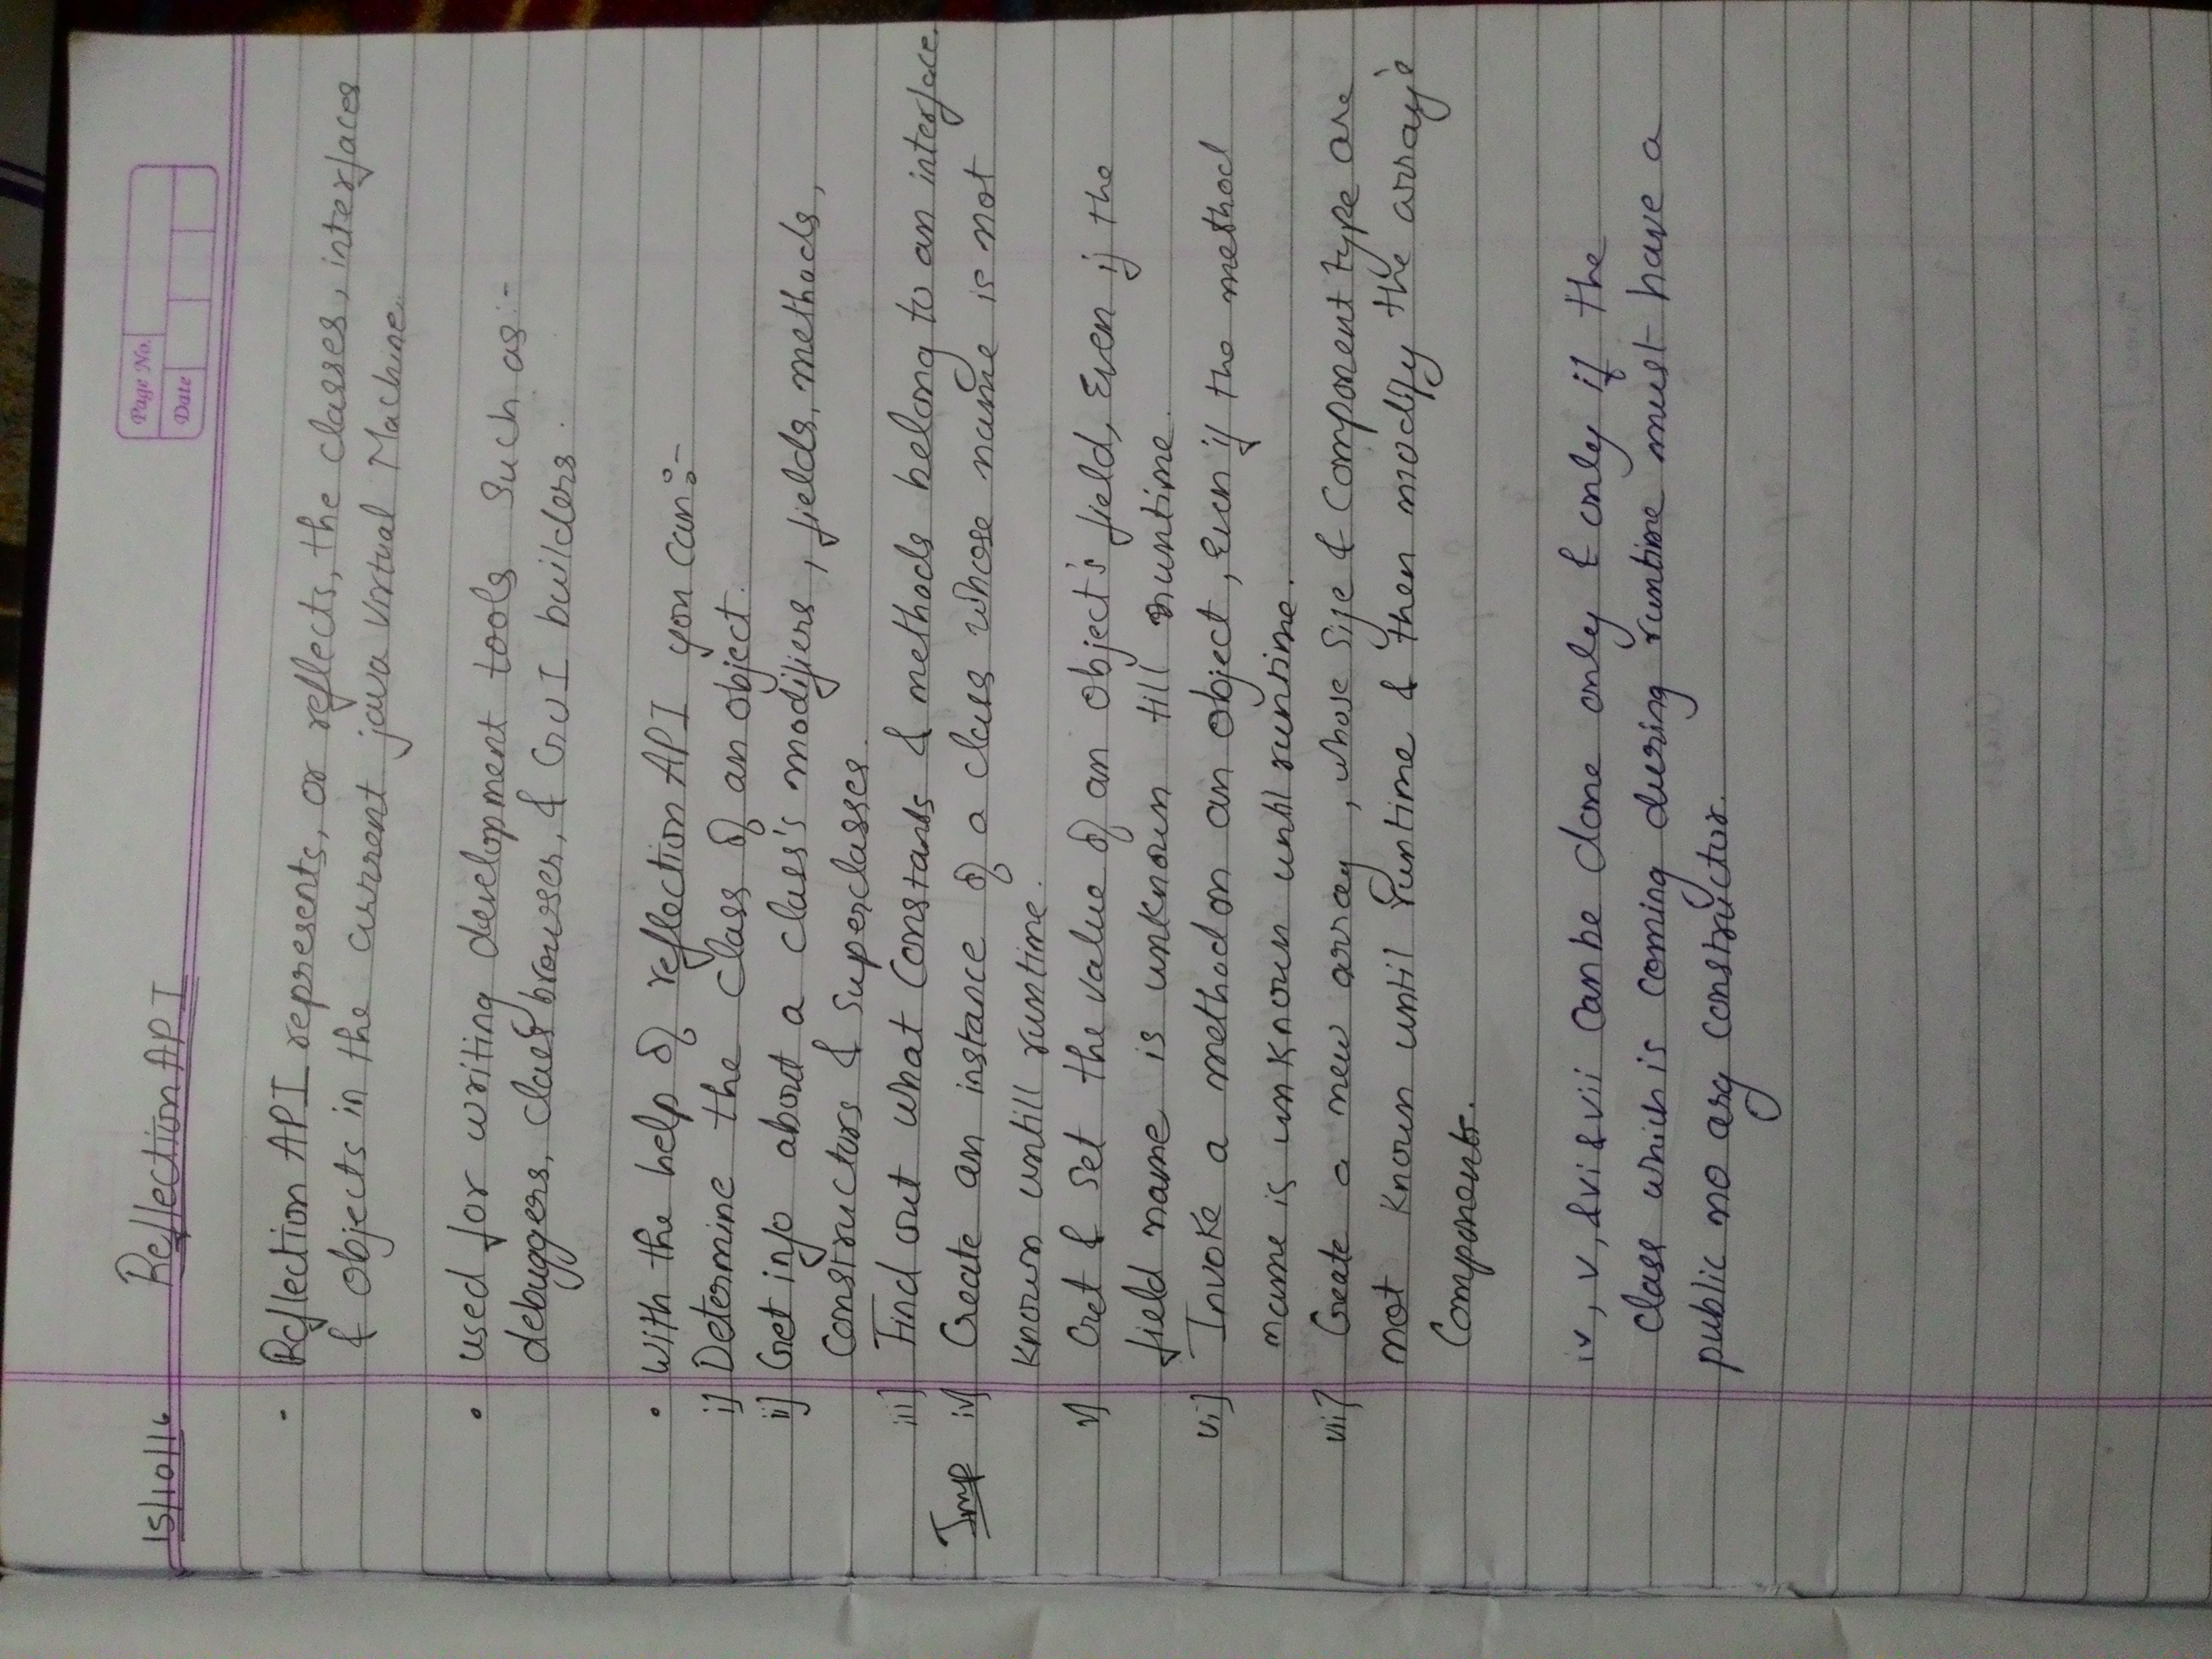 15/10/16 Reflection API
Page No.
Date
- Reflection API represents, or reflects, the classes, interfaces
& objects in the current java Virtual Machine.
• used for writing development tools Such as :-
debuggers, class browser, & GUI builders.
• With the help of reflection API you can :-
i] Determine the class of an object.
ii] Get info about a class's modifiers, fields, methods,
constructors & Superclasses.
iii] Find out what constants & methods belong to an interface.
Imp iv] Create an instance of a class whose name is not
known untill runtime.
v] Get & Set the value of an object's field, Even if the
field name is unknown till runtime.
vi] Invoke a method on an object, Even if the method
name is unknown until runtime.
vii] Create a new array, whose Size & Component type are
not known until runtime & then modify the array's
Components.
iv, v, & vi & vii can be done only & only if the
class which is coming during runtime must have a
public no arg constructor.